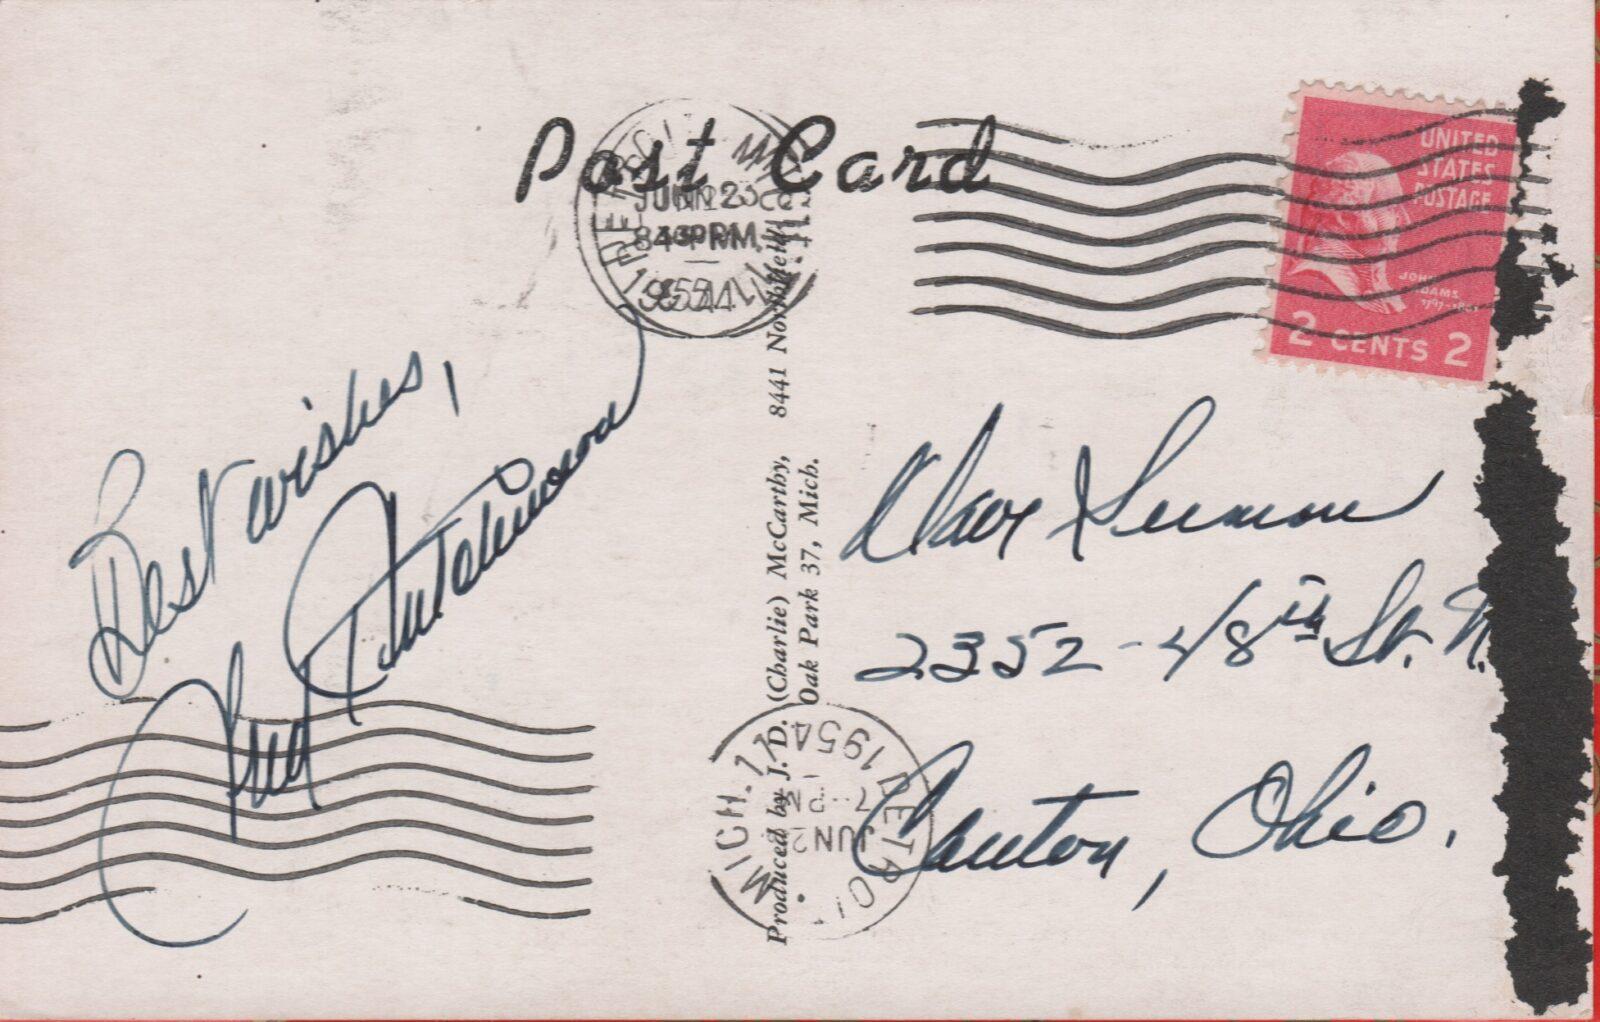 Post Card
UNITED
STATES
POSTAGE
JOHN
ADAMS
2 CENTS 2
8 PM
Best wishes,
Fred Hutchinson
Dave
2352 - 48th St. N.
Canton, Ohio.
Produced by J. D. (Charlie) McCarthy, 8441 Northfield,
Oak Park 37, Mich.
DETROIT
MICH. 11
JUN 2
7 - PM
1954